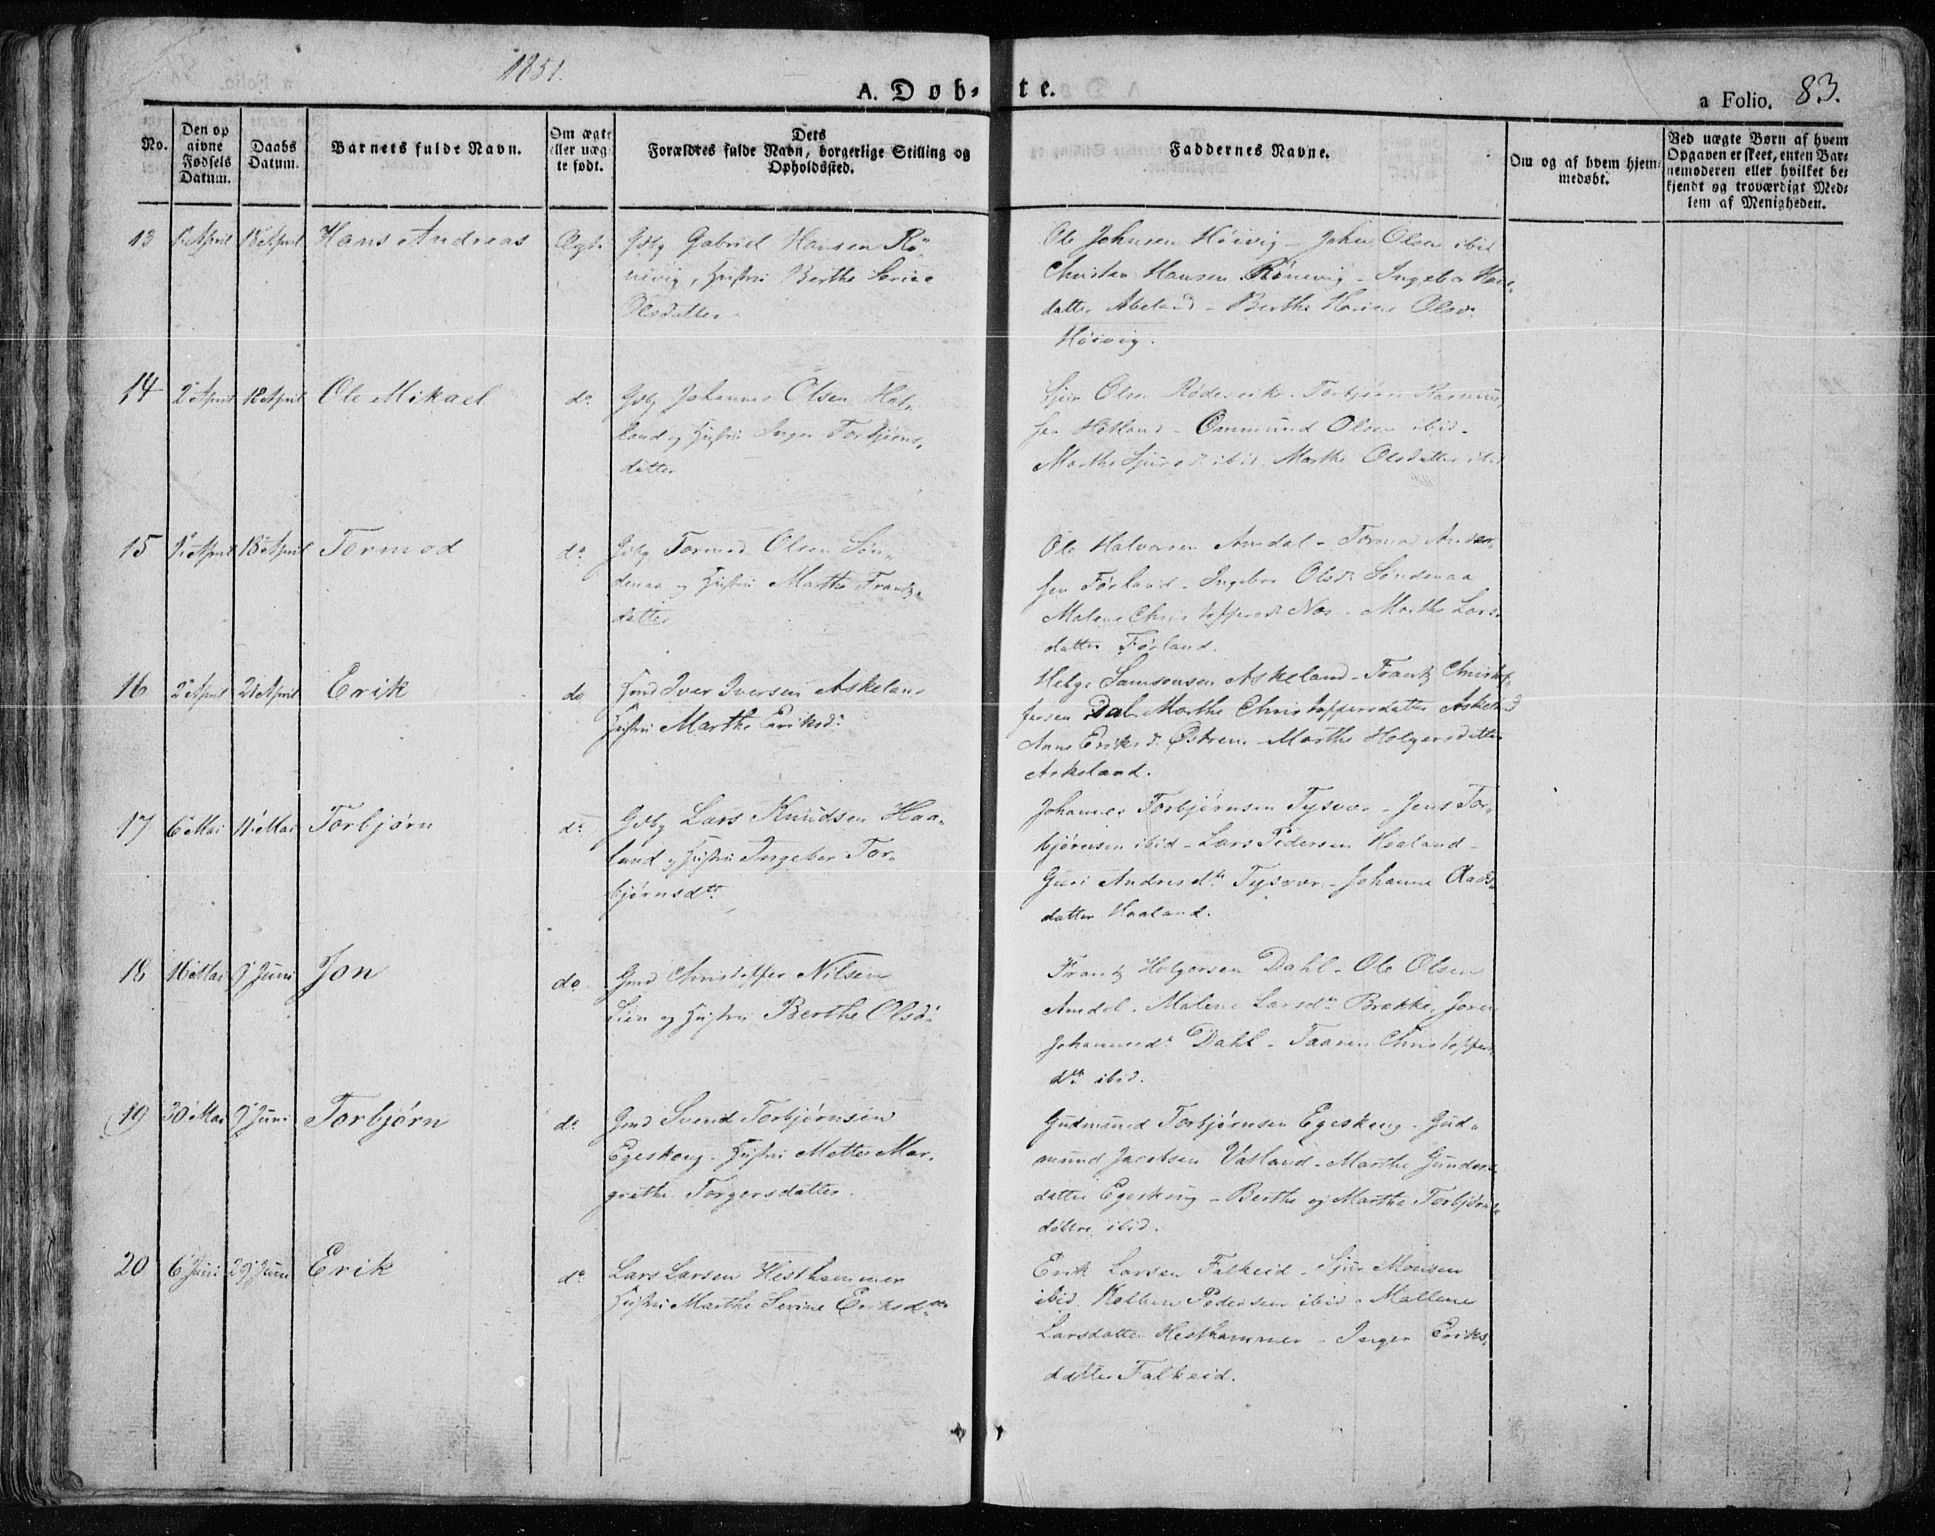 1851.
A. Døb-te.
a Folio. 83.
No.
Den op
givne
Fødsels
Datum.
Daabs
Datum.
Barnets fulde Navn.
Om ægte
eller uæg-
te født.
Dets
Forældres fulde Navn, borgerlige Stilling og
Opholdssted.
Faddernes Navne.
Om og af hvem hjem-
medøbt.
Ved uægte Børn af hvem
Opgaven er skeet, enten Bar-
nemoderen eller hvilket be-
kjendt og troværdigt Med-
lem af Menigheden.
13 April 18 April Hans Andreas Ægt. Gdbr Gabriel Hansen Rö-
nevig, Hustru Berthe Serine
Olsdatter
Ole Johnsen Höivig - John Olsen ibid
Christen Hansen Rönevig - Ingebor Hans-
datter Abeland - Berthe Olsd.
Höivig.
14 2 April 18 April Ole Mikael do. Gdbr Johannes Olsen Het-
land og Hustru Inger Torbjörns-
datter
Sjur Olsen - Torbjörn Rasmus-
sen Hetland - Ommund Olsen ibid.
Marthe Sjursd. ibid. Marthe Olsdatter ibid
15 April 18 April Tormod do. Gdbr Tormod Olsen Sön-
denaa og Hustru Marthe Frantz-
datter
Ole Halvorsen Amdal - Tormod Ander-
sen Førland - Ingebor Olsd. Søndenaa
Malene Christoffersd. Nes - Marthe Lars-
datter Førland.
16 2 April 21 April Erik do Gmd Iver Iversen Askeland
Hustru Marthe Eriksd.
Helge Samsonsen Askeland - Frantz Christof-
fersen Dal - Marthe Christoffersdatter Askeland
Anne Eriksd. Østrem - Marthe Helgersdatter
Askeland.
17 6 Mai 11 Mai Torbjørn do. Gdbr Lars Knudsen Haa-
land og Hustru Ingebor Tor-
bjørnsdtr.
Johannes Torbjørnsen Tysvær - Jens Tor-
bjørnsen ibid - Lars Pedersen Haaland -
Guri Andresdtr. Tysvær - Johanne Aads-
datter Haaland.
18 16 Mai 9 Juni Jon do. Gmd Christoffer Nilsen
Lien og Hustru Berthe Olsd.
Frantz Helgersen Dahl - Ole Olsen
Amdal - Malene Larsdtr. Brække,
Johannesd. Dahl - Taaren Christoffers-
dtr. ibid.
19 30 Mai 9 Juni Torbjørn do. Gmd Svend Torbjørnsen
Egeskeug - Hustru Mette Mar-
grethe Torgersdatter.
Gudmund Torbjørnsen Egeskeug - Gud-
mund Jacobsen Vatland - Marthe Gunders-
datter Egeskeug - Berthe og Marthe Torbjørns-
døttre ibid.
20 6 Juni 29 Juni Erik do. Lars Larsen Hesthammer
Hustru Marthe Serine Eriksdtr.
Erik Larsen Falkeid - Sjur Monsen
ibid. Kolben Pedersen ibid - Mallene
Larsdatter Hesthammer - Inger Eriks-
datter Falkeid.